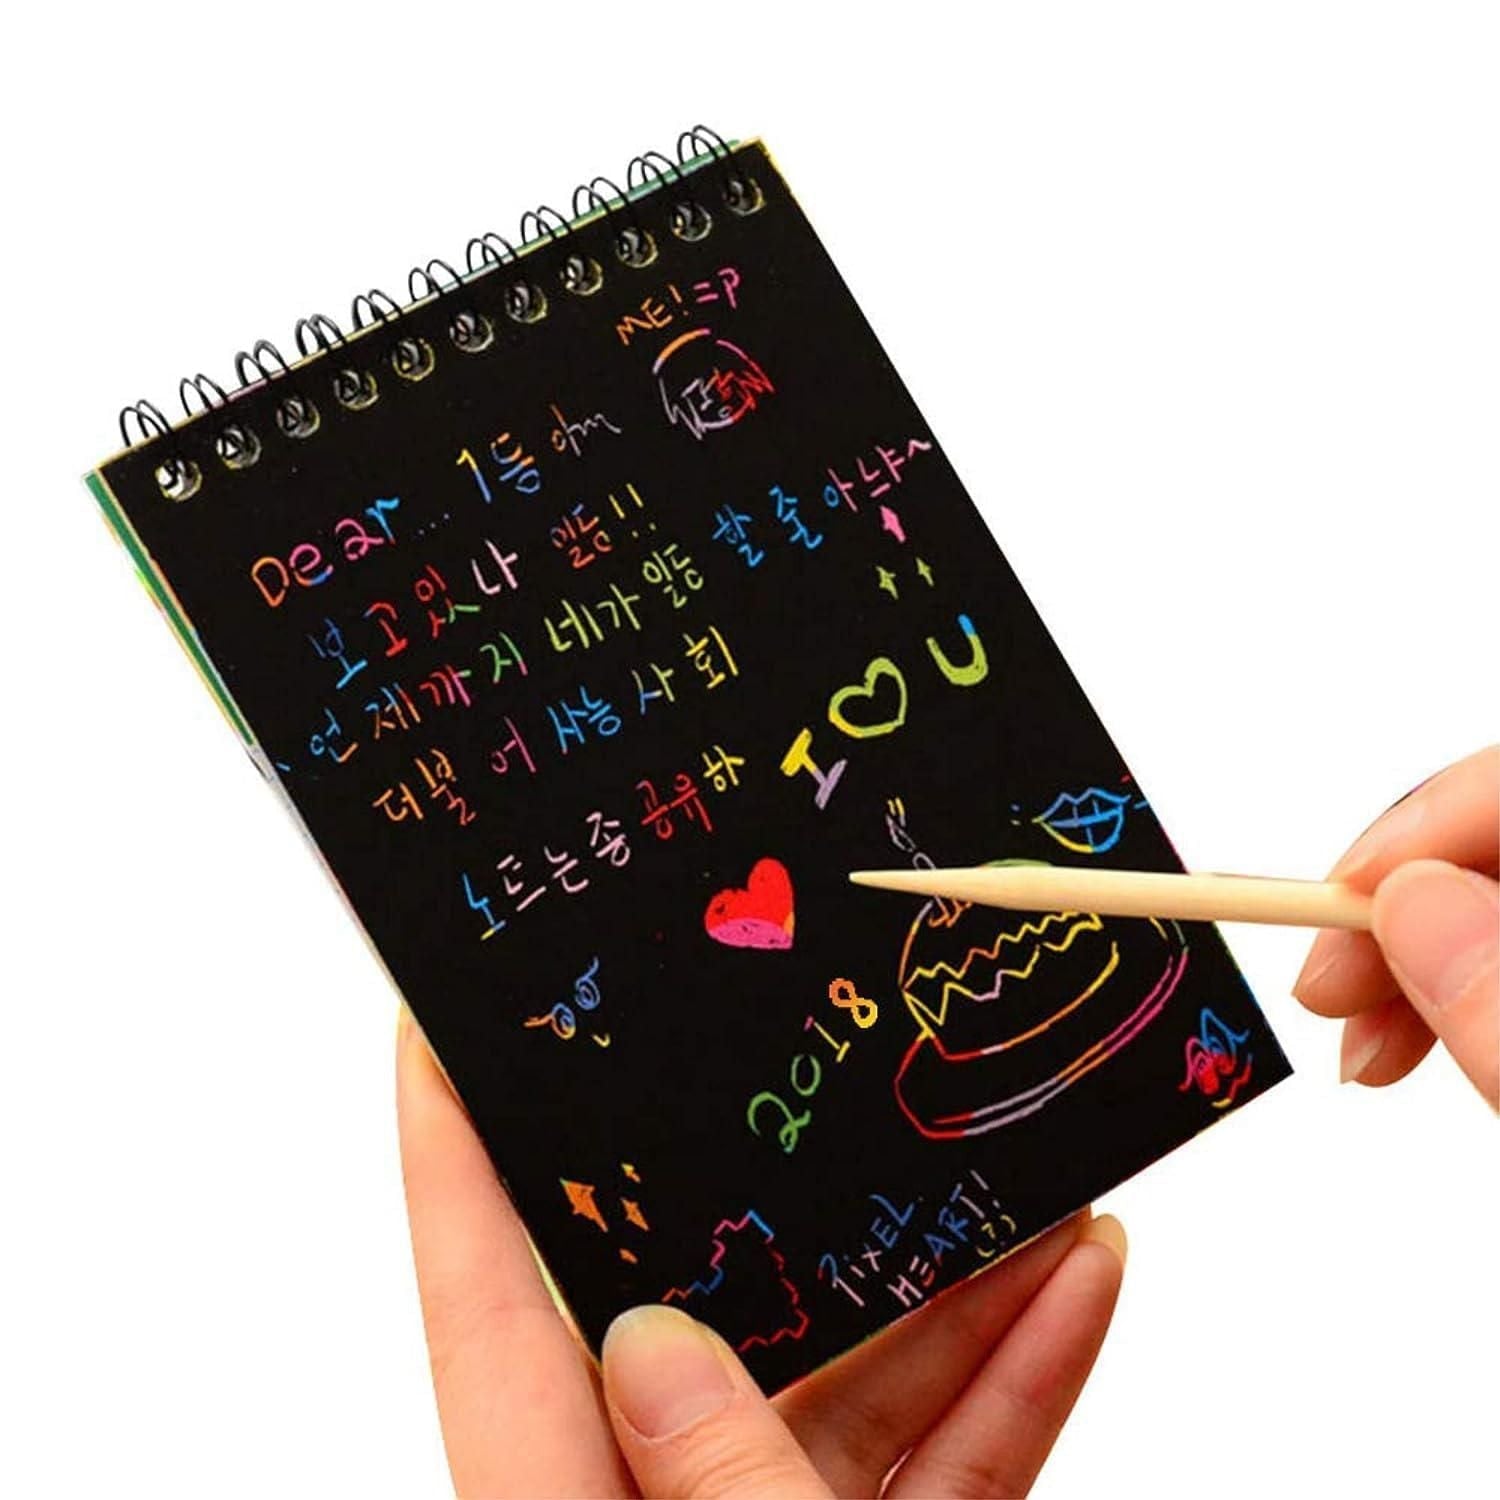 ME! =P
Dear... 1등 아m
보고있나 일등!!
언제까지 네가 일등 할 줄 아냐~
더불어 사는 사회
노트는 좀 공유하
I ♡ U
2018
PIXEL
HEART!
(?)